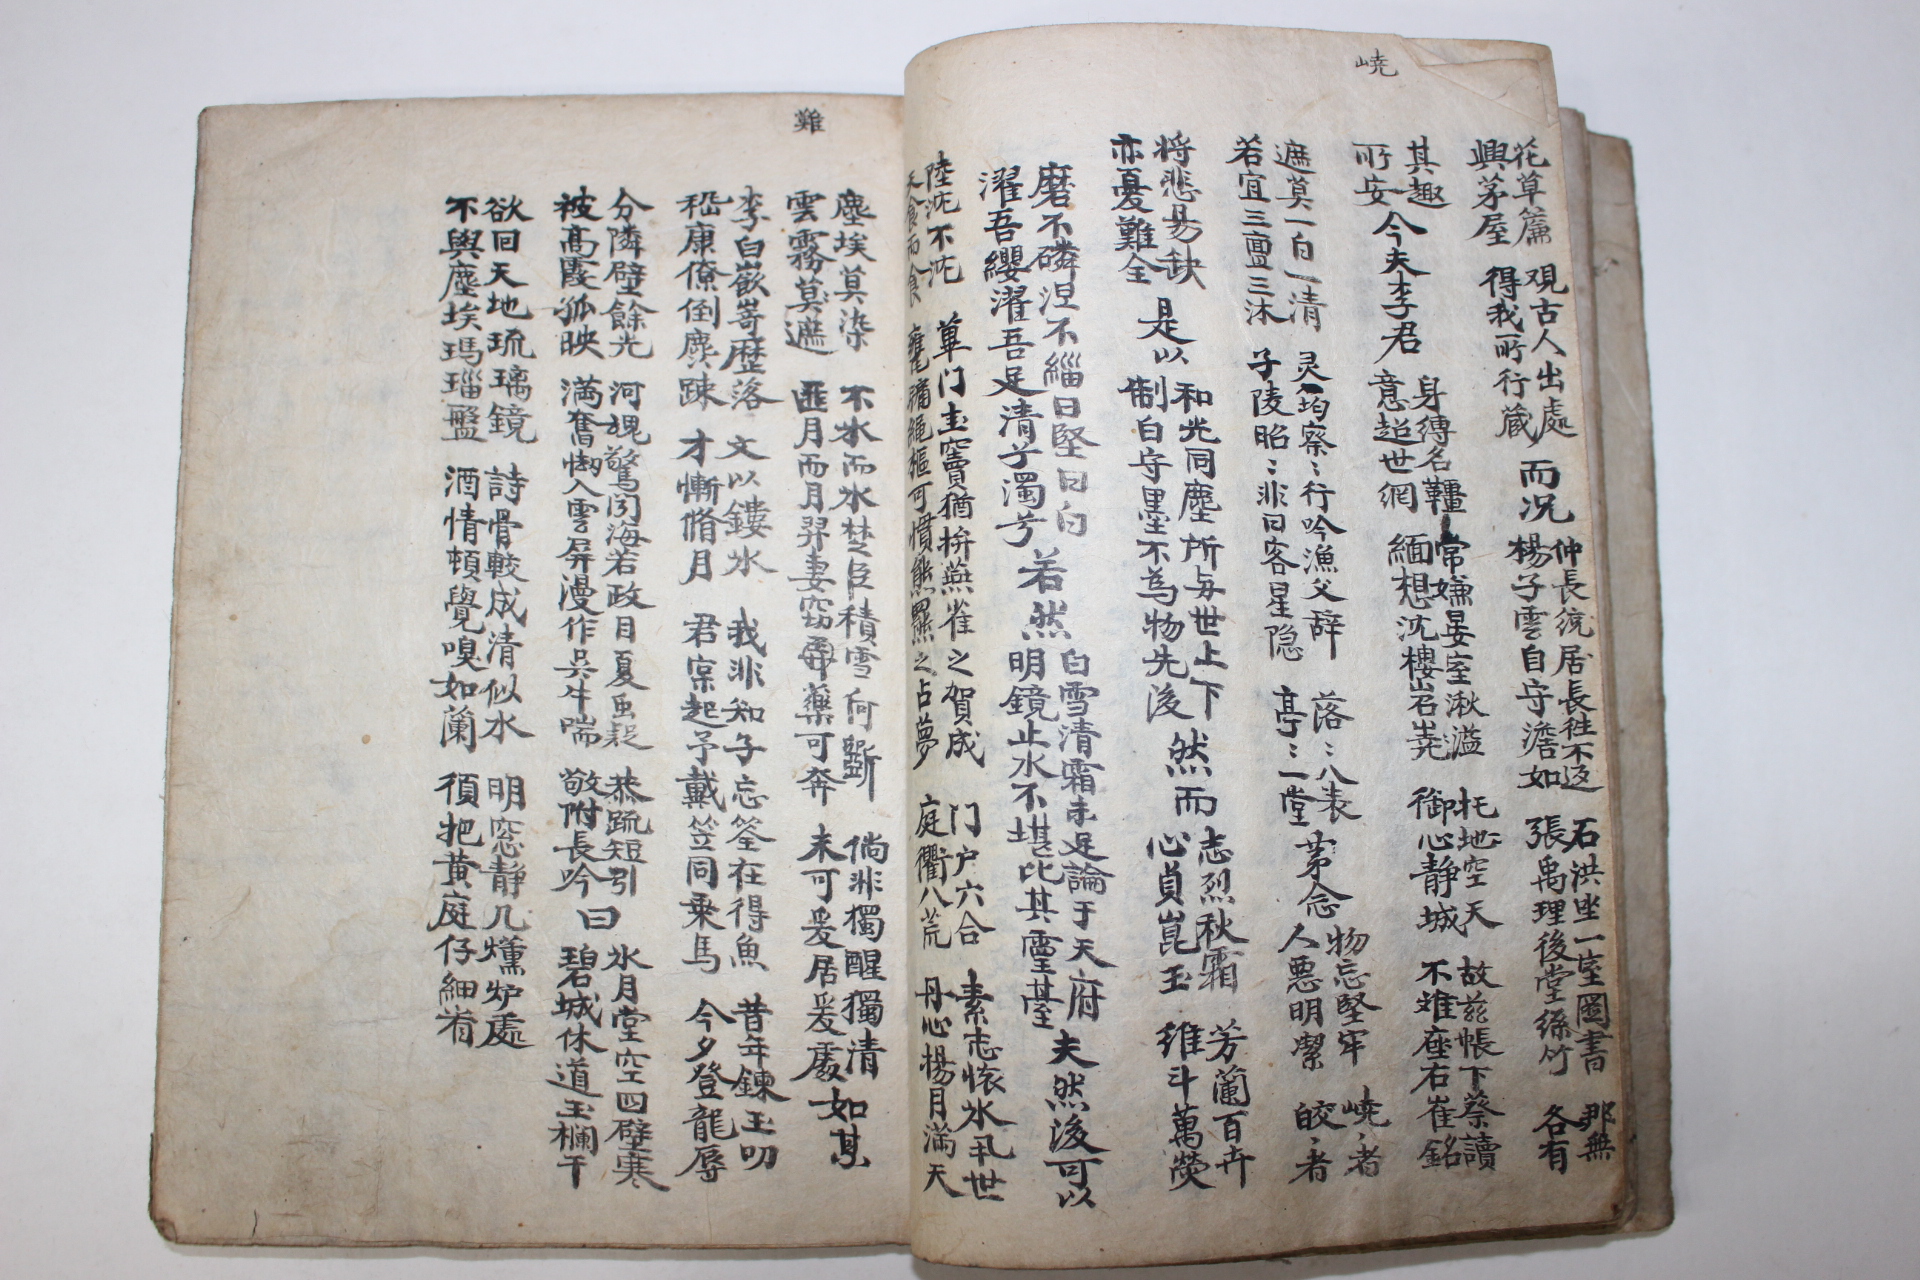 嶢
花草簾 觀古人出處 而况 仲長統居長往不返 石洪坐一室圖書 那無
興茅屋 得我所行藏 楊子雲自守澹如 張禹理後堂絲竹 各有
其趣 今夫李君 身縛名韁 常嫌晏室湫溢 托地空天 故玆帳下蔡讀
所安 意超世網 緬想沈樓岧嶤 御心靜城 不难座右崔銘
遮莫一白一清 灵均察〻行吟漁父辞 落〻八表 第念 物忘堅牢 嶢〻者
若宜三亶三沐 子陵昭〻非曰客星隐 亭〻一堂 人惡明潔 皎〻者
将悲易缺 是以 和光同塵所与世上下 然而 志烈秋霜 芳蘭百卉
亦憂難全 制白守墨不為物先後 心貞崑玉 维斗萬熒
磨不磷涅不緇曰堅曰白 若然 白雪清霜未足論于天府 夫然後可以
濯吾纓濯吾足清兮濁兮 明鏡止水不堪比其靈臺
陸沈不沈 蓽门圭竇猶拚燕雀之賀成 门户六合 素志懷氷 世
天食而食 甕牖繩樞可慣熊羆之占夢 庭衢八荒 丹心楊月滿天
難
塵埃莫染 不氷而氷楚臣積雪何斲 倘非獨醒獨清 如某
雲霧莫遮 匪月而月羿妻窃 藥可奔 未可爰居爰處
李白嶔嵜歷落 文以鏤氷 我非知子忘筌在得魚 昔年鍊玉叨
嵇康僚倒麁踈 才慚脩月 君寀起予戴笠同乗馬 今夕登龍辱
分隣壁餘光 河規驚闲海若政目夏虫疑 恭疏短引 曰 氷月堂空四壁寒
被高霞孤映 满奮 入雲屏漫作吳牛喘 敬附長吟 碧城休道玉欄干
欲回天地琉璃鏡 詩骨較成清似水 明窓静几爐處
不與塵埃瑪瑙盤 酒情頓覺嗅如蘭 須把黄庭仔細看